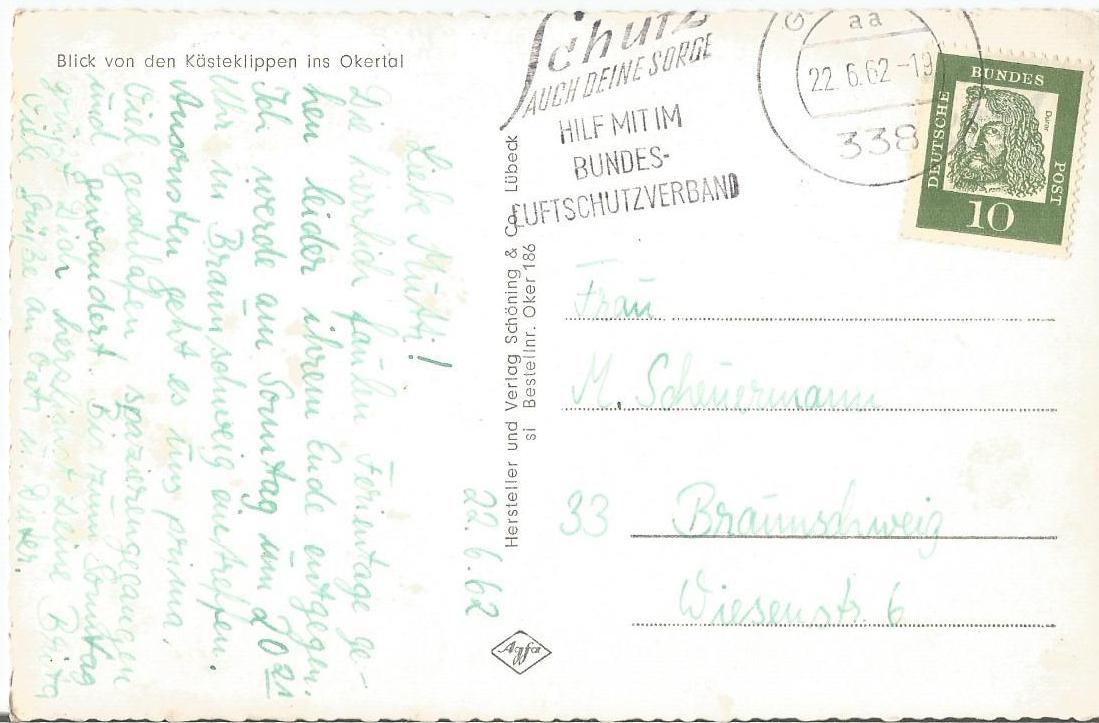 Blick von den Kästeklippen ins Okertal
22.6.62
Liebe Mutti!
Die herrlich faulen Ferientage ge-
hen leider ihrem Ende entgegen.
Ich werde am Sonntag um 20 21
Uhr in Braunschweig eintreffen.
Ansonsten geht es uns prima.
Viel geschlafen, spazierengegangen
und gewandert. Bis zum Sonntag
grüßt Dich herzlichst Deine
Viele Grüße an Vati u. Dieter.
Hersteller und Verlag Schöning & Co., Lübeck
si Bestellnr. Oker 186
Agfa
Schutz
AUCH DEINE SORGE
HILF MIT IM
BUNDES-
LUFTSCHUTZVERBAND
G
aa
22.6.62-19
338
DEUTSCHE
BUNDES
POST
Dürer
10
Frau
M. Scheuermann
33 Braunschweig
Wiesenstr. 6